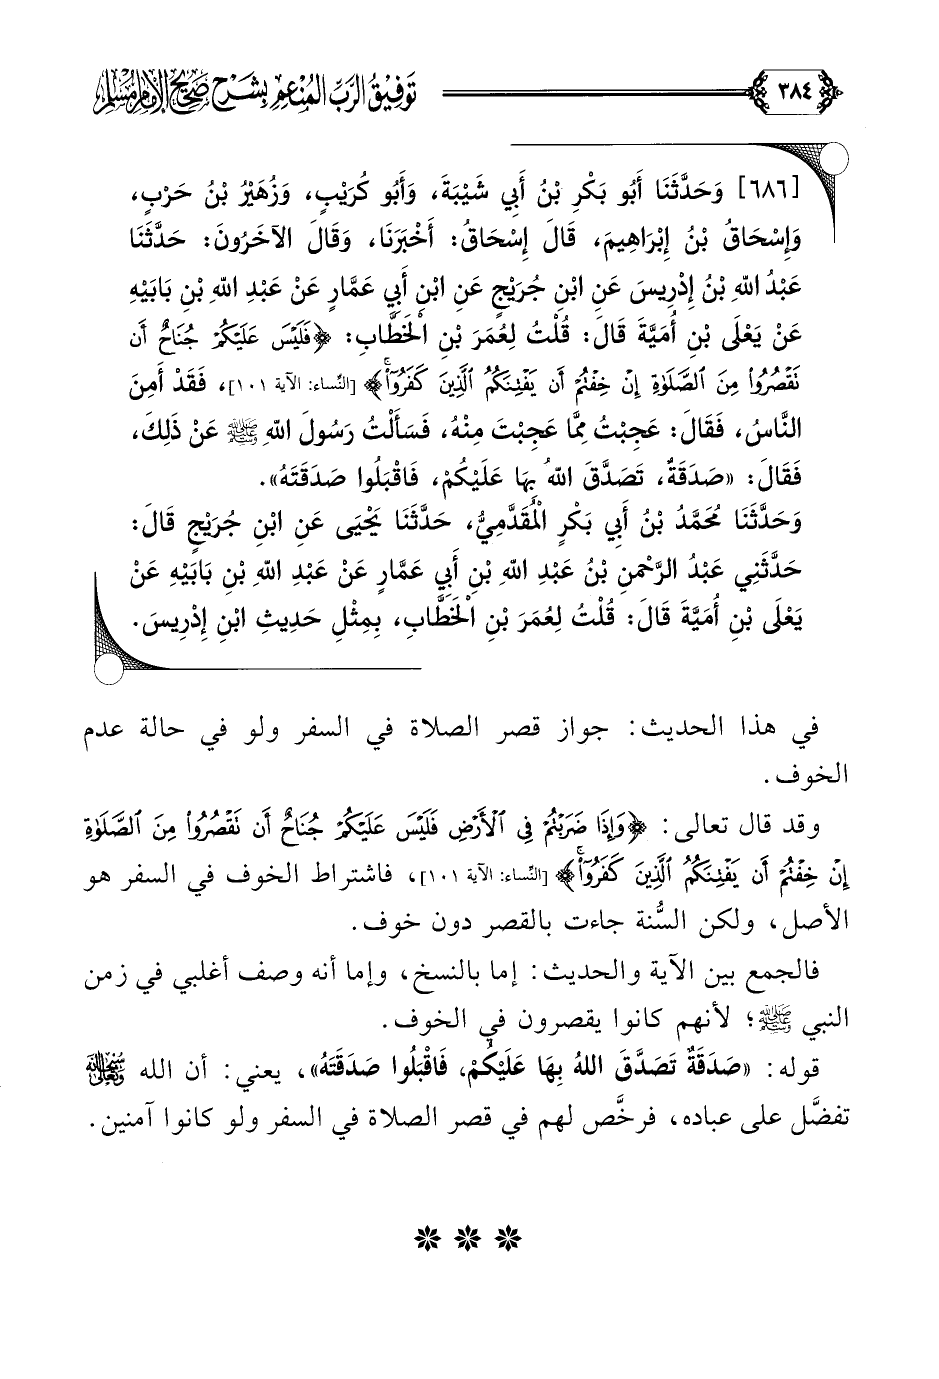 ٣٨٤
توفيق الرب المنعم بشرح صحيح الإمام مسلم
[٦٨٦] وَحَدَّثَنَا أَبُو بَكْرِ بْنُ أَبِي شَيْبَةَ، وَأَبُو كُرَيْبٍ، وَزُهَيْرُ بْنُ حَرْبٍ،
وَإِسْحَاقُ بْنُ إِبْرَاهِيمَ، قَالَ إِسْحَاقُ: أَخْبَرَنَا، وَقَالَ الآخَرُونَ: حَدَّثَنَا
عَبْدُ اللهِ بْنُ إِدْرِيسَ عَنِ ابْنِ جُرَيْجٍ عَنِ ابْنِ أَبِي عَمَّارٍ عَنْ عَبْدِ اللهِ بْنِ بَابَيْهِ
عَنْ يَعْلَى بْنِ أُمَيَّةَ قَالَ: قُلْتُ لِعُمَرَ بْنِ الْخَطَّابِ: ﴿فَلَيْسَ عَلَيْكُمْ جُنَاحٌ أَن
نَقْصُرُوا۟ مِنَ ٱلصَّلَوٰةِ إِنْ خِفْتُمْ أَن يَفْتِنَكُمُ ٱلَّذِينَ كَفَرُوٓا۟ۚ﴾ [النِّساء: الآية ١٠١]، فَقَدْ أَمِنَ
النَّاسُ، فَقَالَ: عَجِبْتُ مِمَّا عَجِبْتَ مِنْهُ، فَسَأَلْتُ رَسُولَ اللهِ ﷺ عَنْ ذَلِكَ،
فَقَالَ: «صَدَقَةٌ، تَصَدَّقَ اللهُ بِهَا عَلَيْكُمْ، فَاقْبَلُوا صَدَقَتَهُ».
وَحَدَّثَنَا مُحَمَّدُ بْنُ أَبِي بَكْرٍ الْمُقَدَّمِيُّ، حَدَّثَنَا يَحْيَى عَنِ ابْنِ جُرَيْجٍ قَالَ:
حَدَّثَنِي عَبْدُ الرَّحْمنِ بْنُ عَبْدِ اللهِ بْنِ أَبِي عَمَّارٍ عَنْ عَبْدِ اللهِ بْنِ بَابَيْهِ عَنْ
يَعْلَى بْنِ أُمَيَّةَ قَالَ: قُلْتُ لِعُمَرَ بْنِ الْخَطَّابِ، بِمِثْلِ حَدِيثِ ابْنِ إِدْرِيسَ.
في هذا الحديث: جواز قصر الصلاة في السفر ولو في حالة عدم
الخوف.
وقد قال تعالى: ﴿وَإِذَا ضَرَبْتُمْ فِي ٱلْأَرْضِ فَلَيْسَ عَلَيْكُمْ جُنَاحٌ أَن نَقْصُرُوا۟ مِنَ ٱلصَّلَوٰةِ
إِنْ خِفْتُمْ أَن يَفْتِنَكُمُ ٱلَّذِينَ كَفَرُوٓا۟ۚ﴾ [النِّساء: الآية ١٠١]، فاشتراط الخوف في السفر هو
الأصل، ولكن السُّنة جاءت بالقصر دون خوف.
فالجمع بين الآية والحديث: إما بالنسخ، وإما أنه وصف أغلبي في زمن
النبي ﷺ؛ لأنهم كانوا يقصرون في الخوف.
قوله: «صَدَقَةٌ تَصَدَّقَ اللهُ بِهَا عَلَيْكُمْ، فَاقْبَلُوا صَدَقَتَهُ»، يعني: أن الله سبحانه وتعالى
تفضَّل على عباده، فرخَّص لهم في قصر الصلاة في السفر ولو كانوا آمنين.